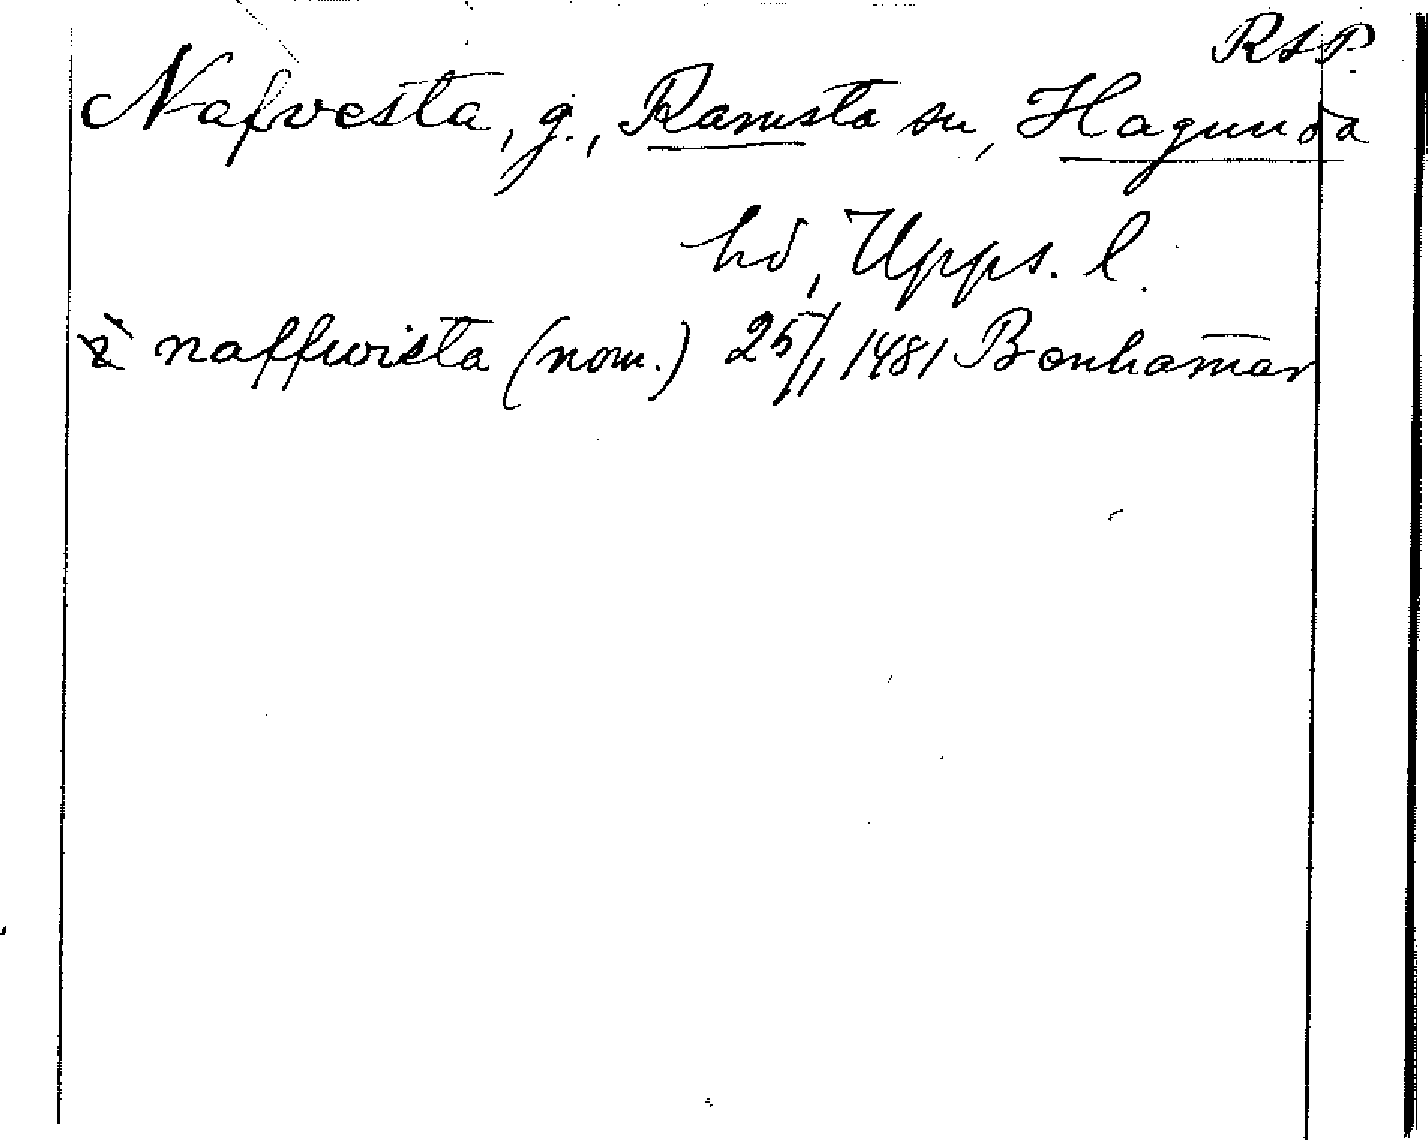 RAP.
Nafvesta, g., Ramsta sn, Hagunda
hd, Upps. l.
i naffwista (nom.) 25/1 1481 Bonhamar